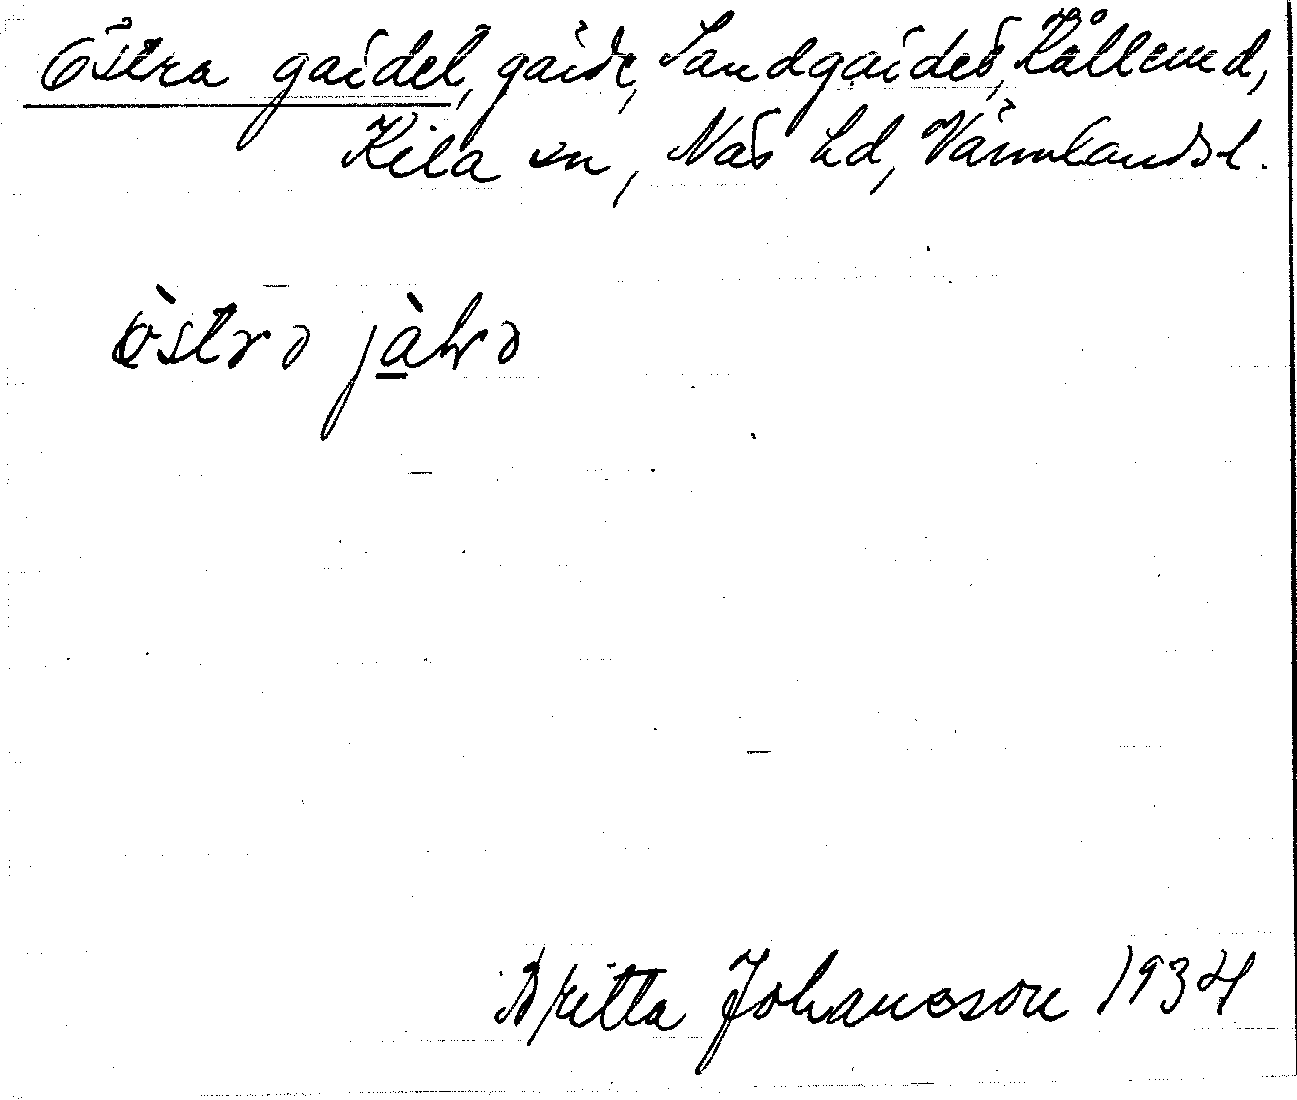 Östra gärdet, gärde, Sandgärdet, Kållerud,
Kila sn, Näs hd, Värmlands l.
östrə jàɫrə
Britta Johansson 1934